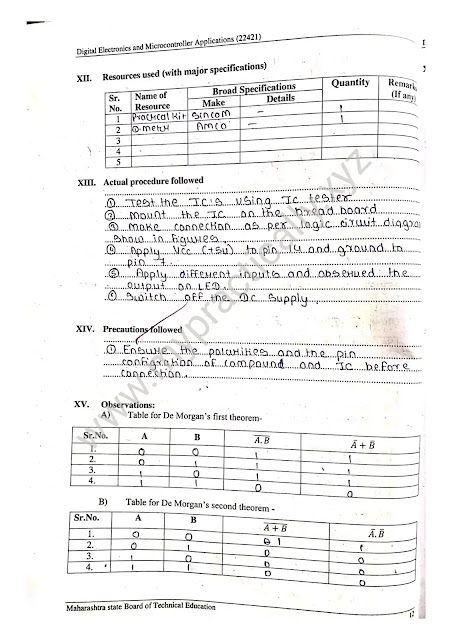 Digital Electronics and Microcontroller Applications (22421)
XII. Resources used (with major specifications)
Sr. No. Name of Resource Broad Specifications Quantity Remark (If any)
Make Details
1 Practical Kit Sincom – 1
2 D-meter Amco – 1
3
4
5
XIII. Actual procedure followed
① Test the IC's using IC tester
② Mount the IC on the bread board
③ make connection as per logic circuit diagra
show in figures.
④ Apply Vcc (+5v) to pin 14 and ground to
pin 7
⑤ Apply different inputs and observed the
output on LED.
⑥ Switch off the DC supply.
XIV. Precautions followed
① Ensure the polarities and the pin
configration of compound and IC before
connection.
XV. Observations:
A) Table for De Morgan's first theorem-
Sr.No. A B A.B A + B
1. 0 0 1 1
2. 0 1 1 1
3. 1 0 1 1
4. 1 1 0 0
B) Table for De Morgan's second theorem -
Sr.No. A B A + B A.B
1. 0 0 1 1
2. 0 1 0 0
3. 1 0 0 0
4. 1 1 0 0
Maharashtra state Board of Technical Education